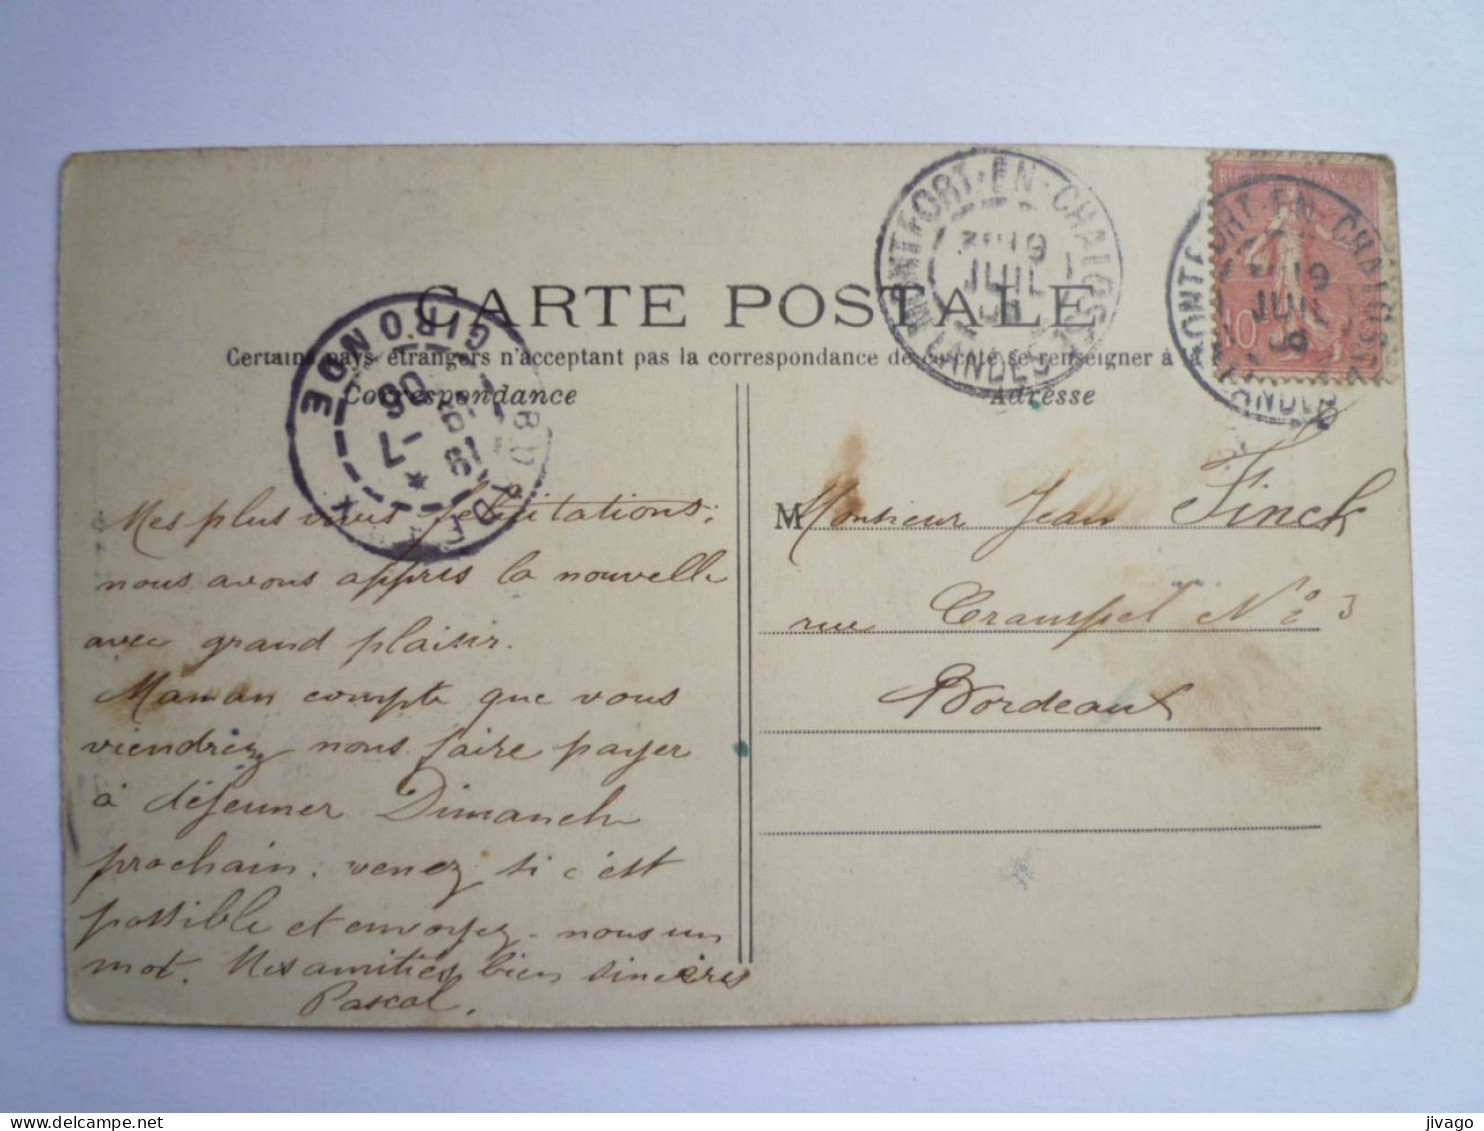 CARTE POSTALE
Certains pays étrangers n'acceptant pas la correspondance de ce côté, se renseigner à la
Correspondance
Adresse
MONTFORT-EN-CHALOSSE
19
JUIL
LANDES
REPUBLIQUE FRANÇAISE
10
MONTFORT-EN-CHALOSSE
19
JUIL
06
LANDES
BORDEAUX
GIRONDE
19
-7
06
Mes plus vives félicitations;
nous avons appris la nouvelle
avec grand plaisir.
Maman compte que vous
viendrez nous faire payer
à déjeuner Dimanche
prochain: venez si c'est
possible et envoyez-nous un
mot. Mes amitiés bien sincères
Pascal.
M Monsieur Jean Finck
rue Crampel No 3
Bordeaux
jivago